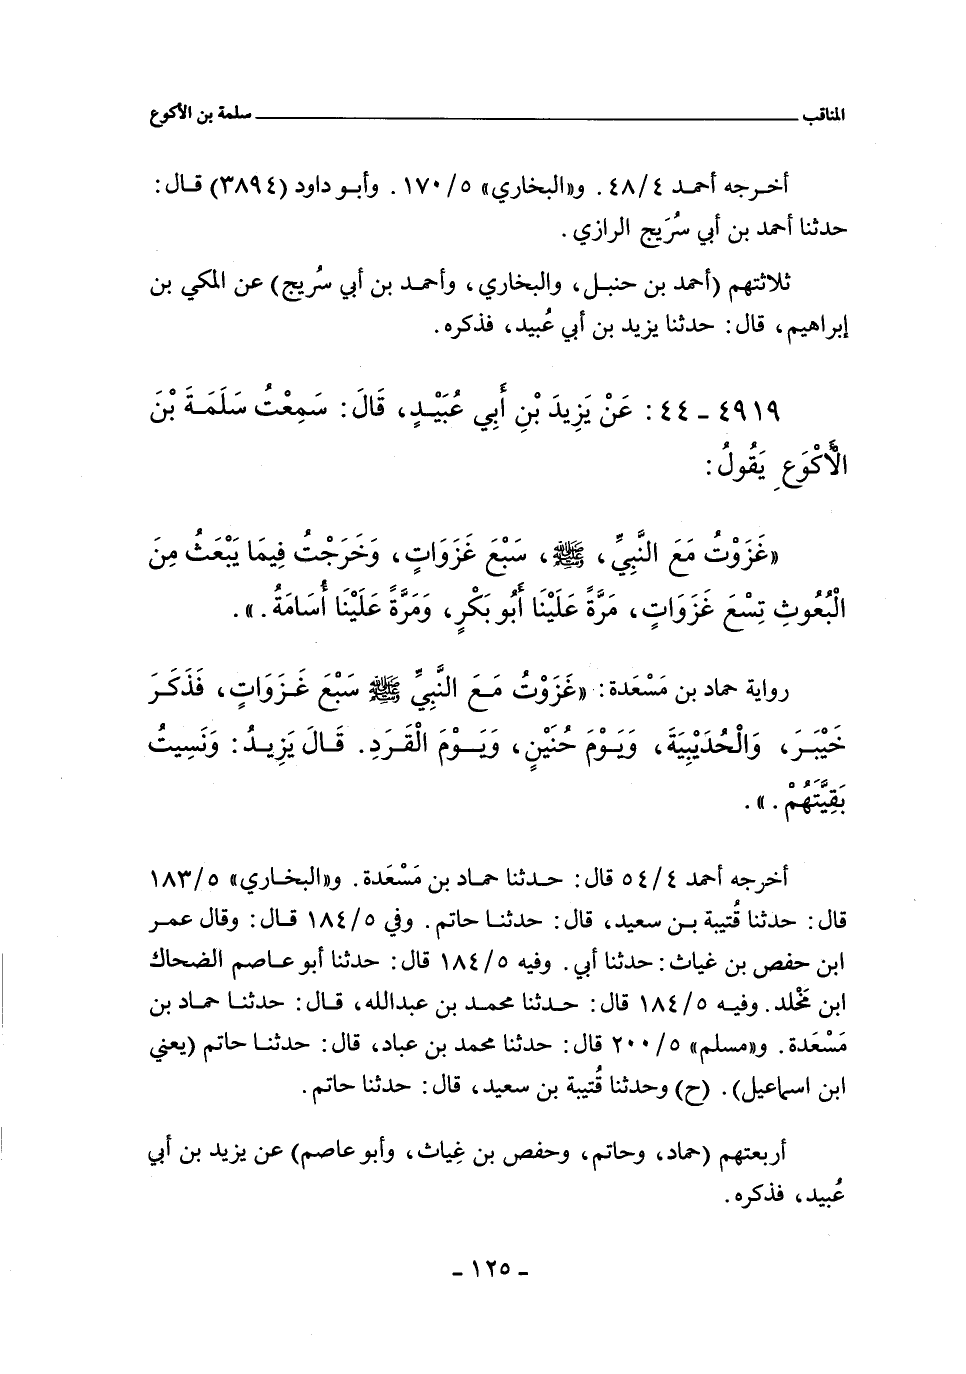 المناقب ــــــــ سلمة بن الأكوع
أخـرجه أحمـد ٤/ ٤٨ . و«البخاري» ٥/ ١٧٠ . وأبـو داود (٣٨٩٤) قـال :
حدثنا أحمد بن أبي سُرَيج الرازي .
ثلاثتهم (أحمد بن حنبـل ، والبخاري ، وأحمـد بن أبي سُريج) عن المكي بن
إبراهيم ، قال : حدثنا يزيد بن أبي عُبيد ، فذكره .
٤٩١٩ ـ ٤٤ : عَنْ يَزِيدَ بْنِ أَبِي عُبَيْـدٍ ، قَالَ : سَمِعْتُ سَلَمَـةَ بْنَ
الْأَكْوَعِ يَقُولُ :
«غَزَوْتُ مَعَ النَّبِيِّ ، ﷺ ، سَبْعَ غَزَوَاتٍ ، وَخَرَجْتُ فِيمَا يَبْعَثُ مِنَ
الْبُعُوثِ تِسْعَ غَزَوَاتٍ ، مَرَّةً عَلَيْنَا أَبُو بَكْرٍ ، وَمَرَّةً عَلَيْنَا أُسَامَةُ . » .
رواية حماد بن مَسْعَدة : «غَزَوْتُ مَـعَ النَّبِيِّ ﷺ سَبْعَ غَـزَوَاتٍ ، فَذَكَـرَ
خَيْبَـرَ ، وَالْحُدَيْبِيَةَ ، وَيَـوْمَ حُنَيْنٍ ، وَيَـوْمَ الْقَـرَدِ . قَـالَ يَزِيـدُ : وَنَسِيتُ
بَقِيَّتَهُمْ . » .
أخرجه أحمد ٤/ ٥٤ قال : حـدثنا حمـاد بن مَسْعَدة . و«البخـاري» ٥/ ١٨٣
قال : حدثنا قُتيبة بـن سعيد ، قال : حدثنـا حاتم . وفي ٥/ ١٨٤ قـال : وقال عمـر
ابن حفص بن غياث : حدثنا أبي . وفيه ٥/ ١٨٤ قال : حدثنا أبو عـاصم الضحاك
ابن مَخْلد . وفيـه ٥/ ١٨٤ قال : حـدثنا محمـد بن عبدالله ، قـال : حدثنـا حمـاد بن
مَسْعَدة . و«مسلم» ٥/ ٢٠٠ قال : حدثنا محمد بن عباد ، قال : حدثنـا حاتم (يعني
ابن اسماعيل) . (ح) وحدثنا قُتيبة بن سعيد ، قال : حدثنا حاتم .
أربعتهم (حماد ، وحاتم ، وحفص بن غِياث ، وأبو عاصم) عن يزيد بن أبي
عُبيد ، فذكره .
ـ ١٢٥ ـ